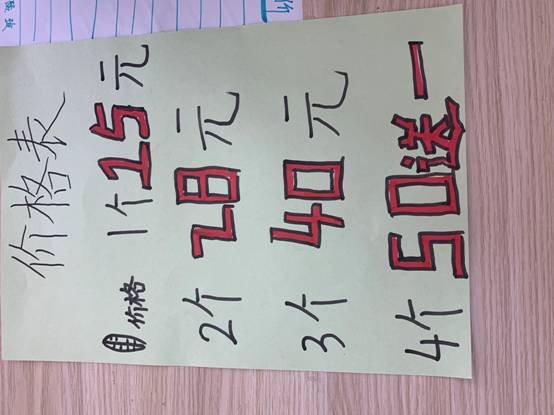 价格表
价格 1个15元
2个 28元
3个 40元
4个 50送一